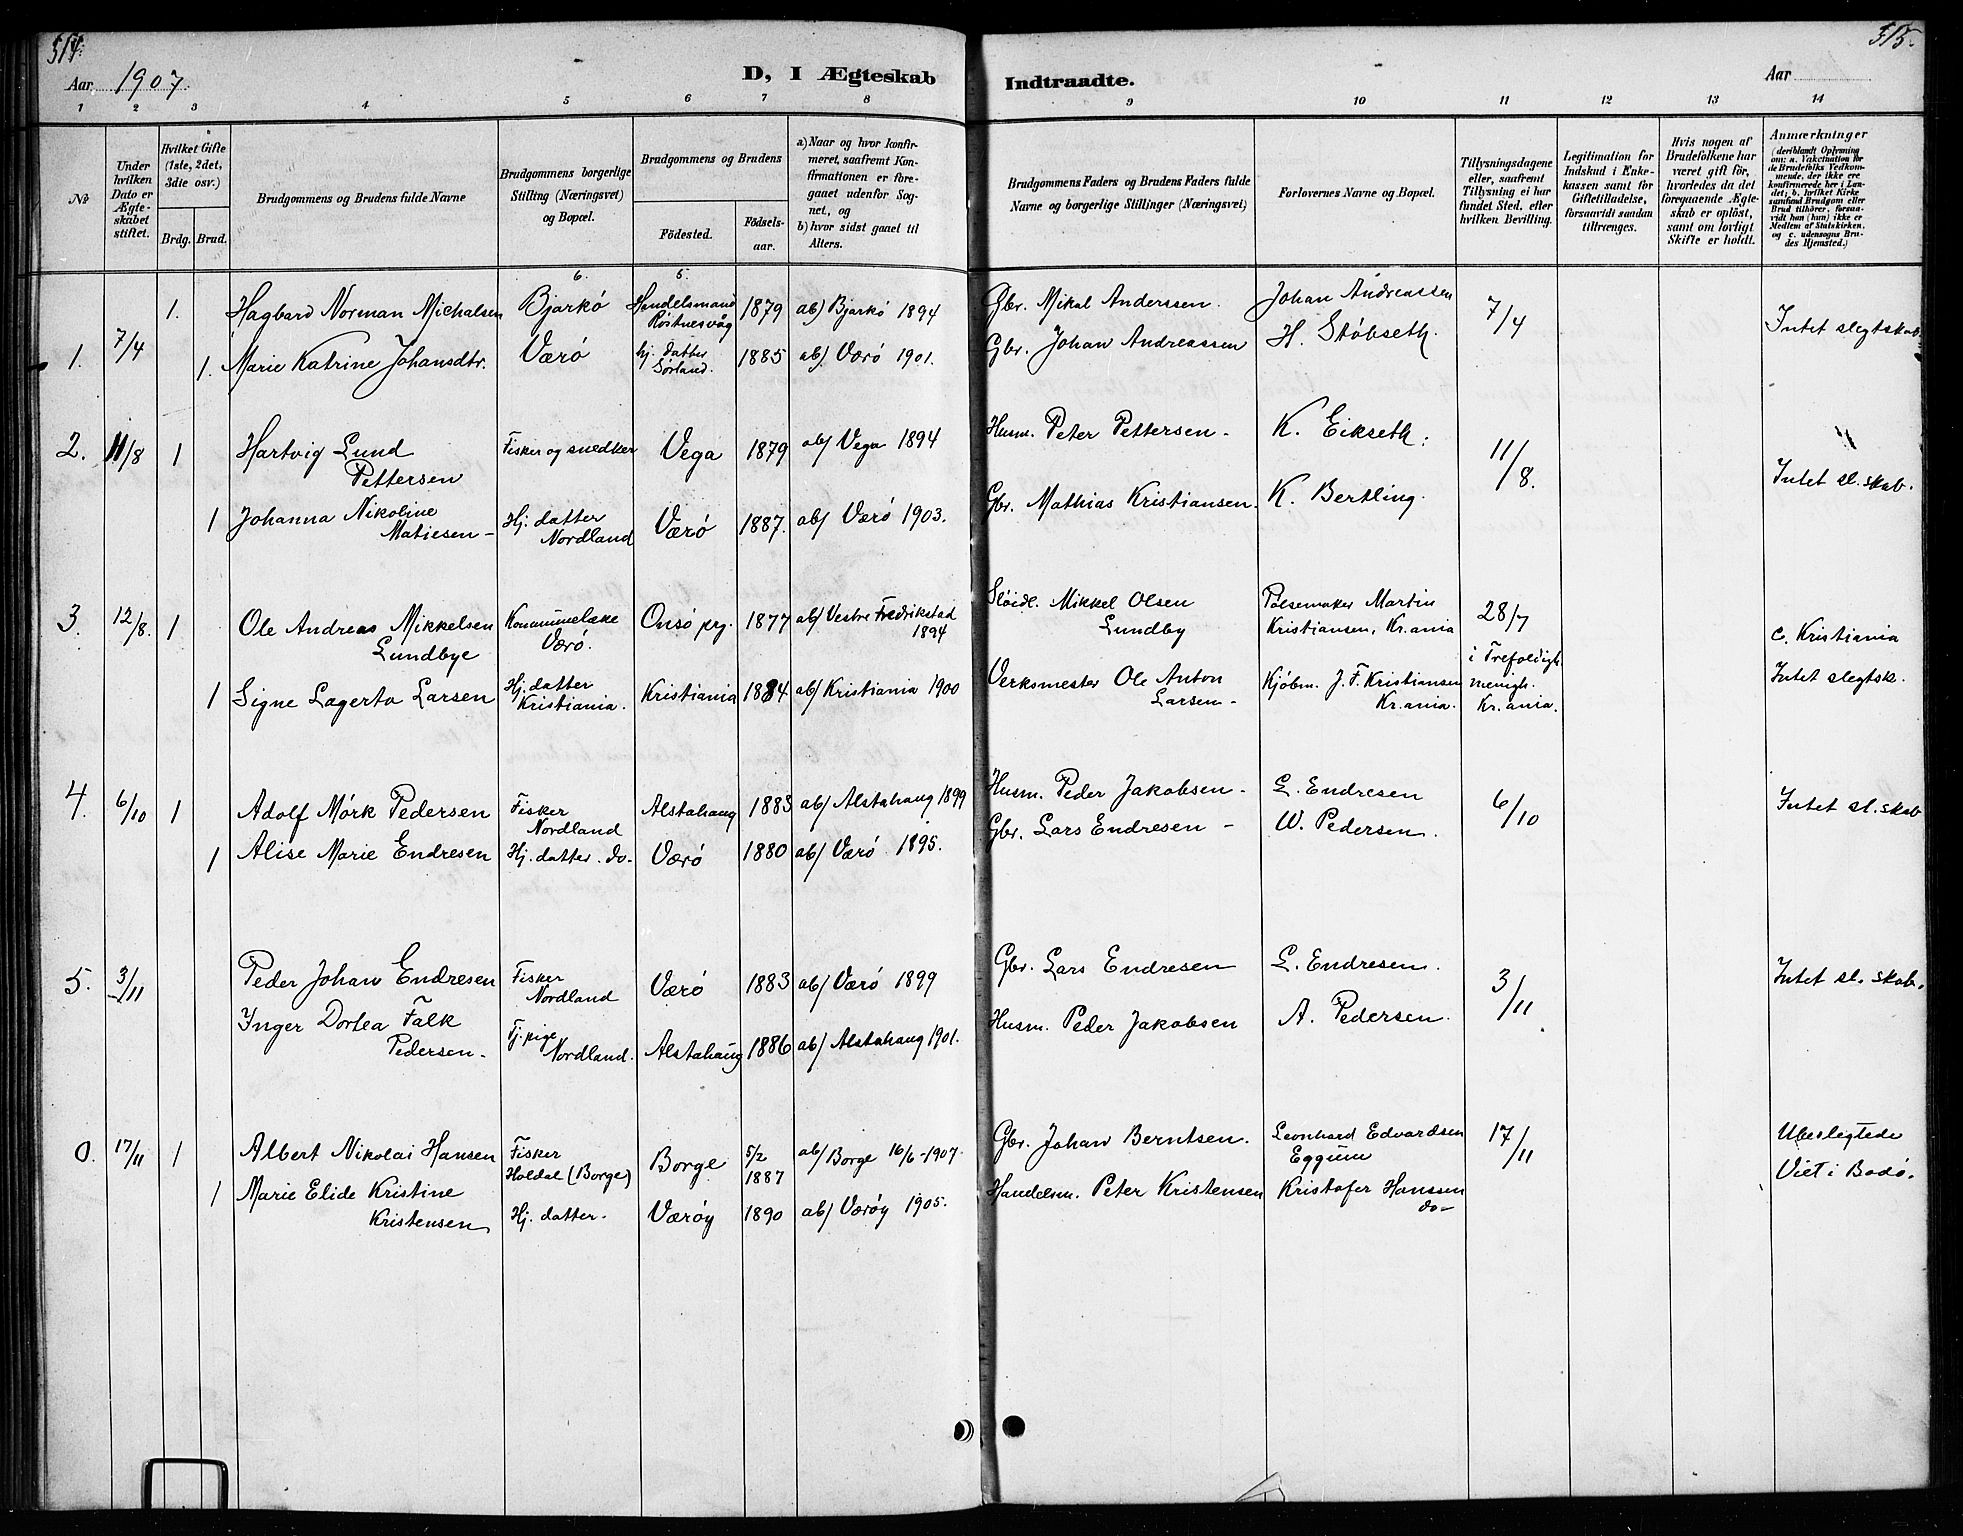 314.
Aar 1907.
D, I Ægteskab
1 2 3 4 5 6 7 8
№
Under hvilken Dato er Ægte-skabet stiftet.
Hvilket Gifte (1ste, 2det, 3die osv.)
Brdg. Brud.
Brudgommens og Brudens fulde Navne
Brudgommens borgerlige Stilling (Næringsvei) og Bopæl.
Brudgommens og Brudens
Födested. Födsels-aar.
a) Naar og hvor konfir-meret, saafremt Kon-firmationen er fore-gaaet udenfor Sog-net, og
b) hvor sidst gaaet til Alters.
6. 5.
1. Hagbard Norman Michalsen Bjarkö Handelsmand 1879 ab) Bjarkö 1894
Röstnesvåg
1. 7/4
1. Marie Katrine Johansdtr. Værö hj. datter 1885 ab) Værö 1901.
Sörland.
2. 11/8 1 Hartvig Lund Fisker og snedker Vega 1879 ab) Vega 1894
Pettersen
1 Johanna Nikoline Hj. datter Værö 1887. ab) Værö 1903.
Matiesen - Nordland
3. 12/8. 1 Ole Andreas Mikkelsen Kommunelæke Onsö prg. 1877 ab) Vestre Fredrikstad
Lundbye Værö. 1894
1 Signe Lagerta Larsen Hj. datter Kristiania 1884 ab) Kristiania 1900
Kristiania.
4. 6/10 1 Adolf Mörk Pedersen Fisker Alstahaug 1883 ab) Alstahaug 1899
Nordland
1 Alise Marie Endresen Hj. datter. do- Værö 1880 ab) Værö 1895.
5. 3/11 Peder Johan Endresen Fisker Værö 1883 ab) Værö 1899
Nordland
Inger Dortea Falk Tj. pige Alstahaug 1886 ab) Alstahaug 1901.
Pedersen - Nordland.
0. 17/11 1 Albert Nikolai Hansen Fisker Borge 5/2 ab) Borge 16/6-1907.
Holdal (Borge) 1887
1 Marie Elide Kristine Hj. datter. Væröy 1890 ab) Væröy 1905.
Kristensen
315.
Indtraadte.
Aar
9 10 11 12 13 14
Brudgommens Faders og Brudens Faders fulde Navne og borgerlige Stillinger (Næringsvei)
Forlovernes Navne og Bopæl.
Tillysningsdagene eller, saafremt Tillysning ei har fundet Sted, efter hvilken Bevilling.
Legitimation for Indskud i Enke-kassen samt for Giftetilladelse, forsaavidt saadan tiltrænges.
Hvis nogen af Brudefolkene har været gift för, hvorledes da det foregaaende Ægte-skab er oplöst, samt om lovligt Skifte er holdt.
Anmærkninger
(deriblandt Oplysning om: a. Vakcination for de Brudefolks Vedkom-mende, der ikke ere konfirmerede her i Lan-det; b. hvilket Kirke-samfund Brudgom eller Brud tilhörer, forsaa-vidt han (hun) ikke er Medlem af Statskirken, og c. udensogns Bru-des Hjemsted.)
Gbr. Mikal Anderssen. Johan Andreassen 7/4
Gbr. Johan Andreassen H. Stöbseth. Intet slegtskab.
Husm. Peter Pettersen - K. Eikseth: 11/8.
Gbr. Mathias Kristiansen. K. Bertling. Intet sl. skab.
Slöidl. Mikkel Olsen Pölsemaker Martin 28/7
Lundby Kristiansen, Kr.ania c. Kristiania
Verksmester Ole Anton Kjöbm. J. F. Kristiansen i Trefoldigh. Intet slegtsk.
Larsen - Kr.ania. menigh.
Kr.ania.
Husm. Peder Jakobsen - L. Endresen 6/10 Intet sl. skab
Gbr. Lars Endresen - W. Pedersen.
Gbr. Lars Endresen L. Endresen. 3/11 Intet sl. skab.
Husm. Peder Jakobsen A. Pedersen.
Gbr. Johan Berntsen. Leonhard Edvardsen 17/11 Ubeslegtede
Eggum
Handelsm. Peter Kristensen Kristofer Hanssen Viet i Bodö.
do-